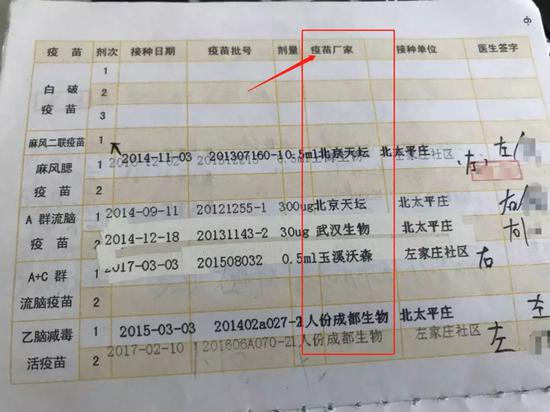 疫苗 剂次 接种日期 疫苗批号 剂量 疫苗厂家 接种单位 医生签字
白破疫苗 1
2
3
麻风二联疫苗 1
麻风腮疫苗 1 2014-11-03 201307160-1 0.5ml 北京天坛 北太平庄 左
2 左家庄社区 右
A 群流脑疫苗 1 2014-09-11 20121255-1 300ug 北京天坛 北太平庄 右
2 2014-12-18 20131143-2 30ug 武汉生物 北太平庄 右
A+C 群流脑疫苗 1 2017-03-03 201508032 0.5ml 玉溪沃森 左家庄社区 右
2
乙脑减毒活疫苗 1 2015-03-03 201402a027-2 1人份 成都生物 北太平庄 左
2 2017-02-10 201606A070-2 1人份 成都生物 左家庄社区 左